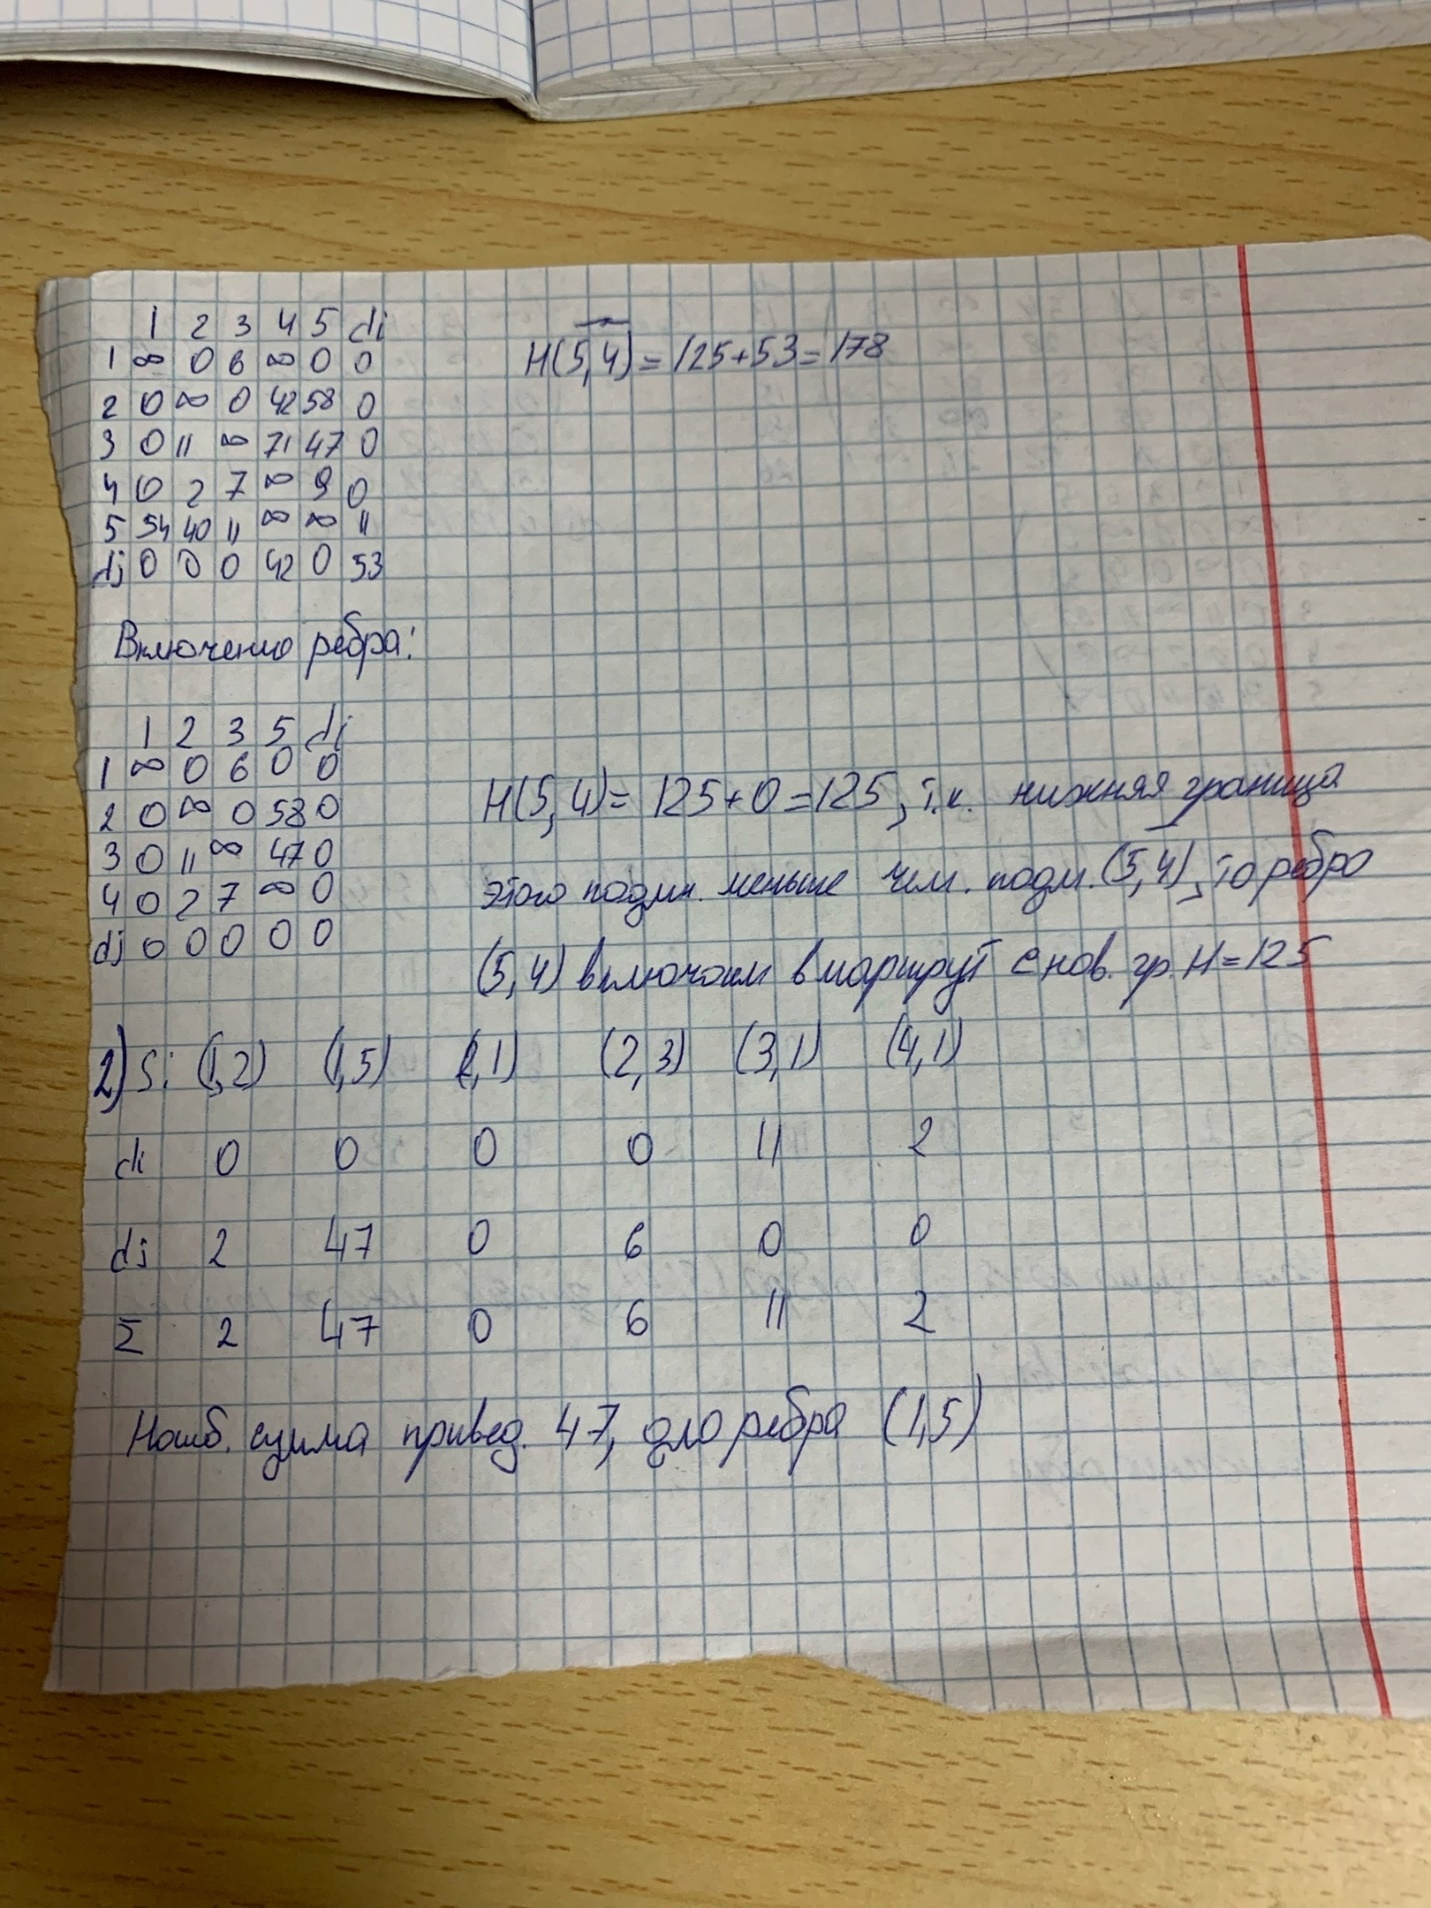 1 2 3 4 5 di
1 ∞ 0 6 ∞ 0 0
2 0 ∞ 0 42 58 0
3 0 11 ∞ 71 47 0
4 0 2 7 ∞ 9 0
5 54 40 11 ∞ ∞ 11
dj 0 0 0 42 0 53
H(5,4) = 125+53=178
Включение ребра:
1 2 3 5 di
1 ∞ 0 6 0 0
2 0 ∞ 0 58 0
3 0 11 ∞ 47 0
4 0 2 7 ∞ 0
dj 0 0 0 0 0
H(5,4)= 125+0=125, т.к. нижняя граница
этого подмн. меньше чем. подм. (5,4), то ребро
(5,4) включаем в маршрут с нов. гр. H=125
2) Si (1,2) (1,5) (2,1) (2,3) (3,1) (4,1)
di 0 0 0 0 11 2
dj 2 47 0 6 0 0
Σ 2 47 0 6 11 2
Наиб. сумма привед. 47, для ребра (1,5)